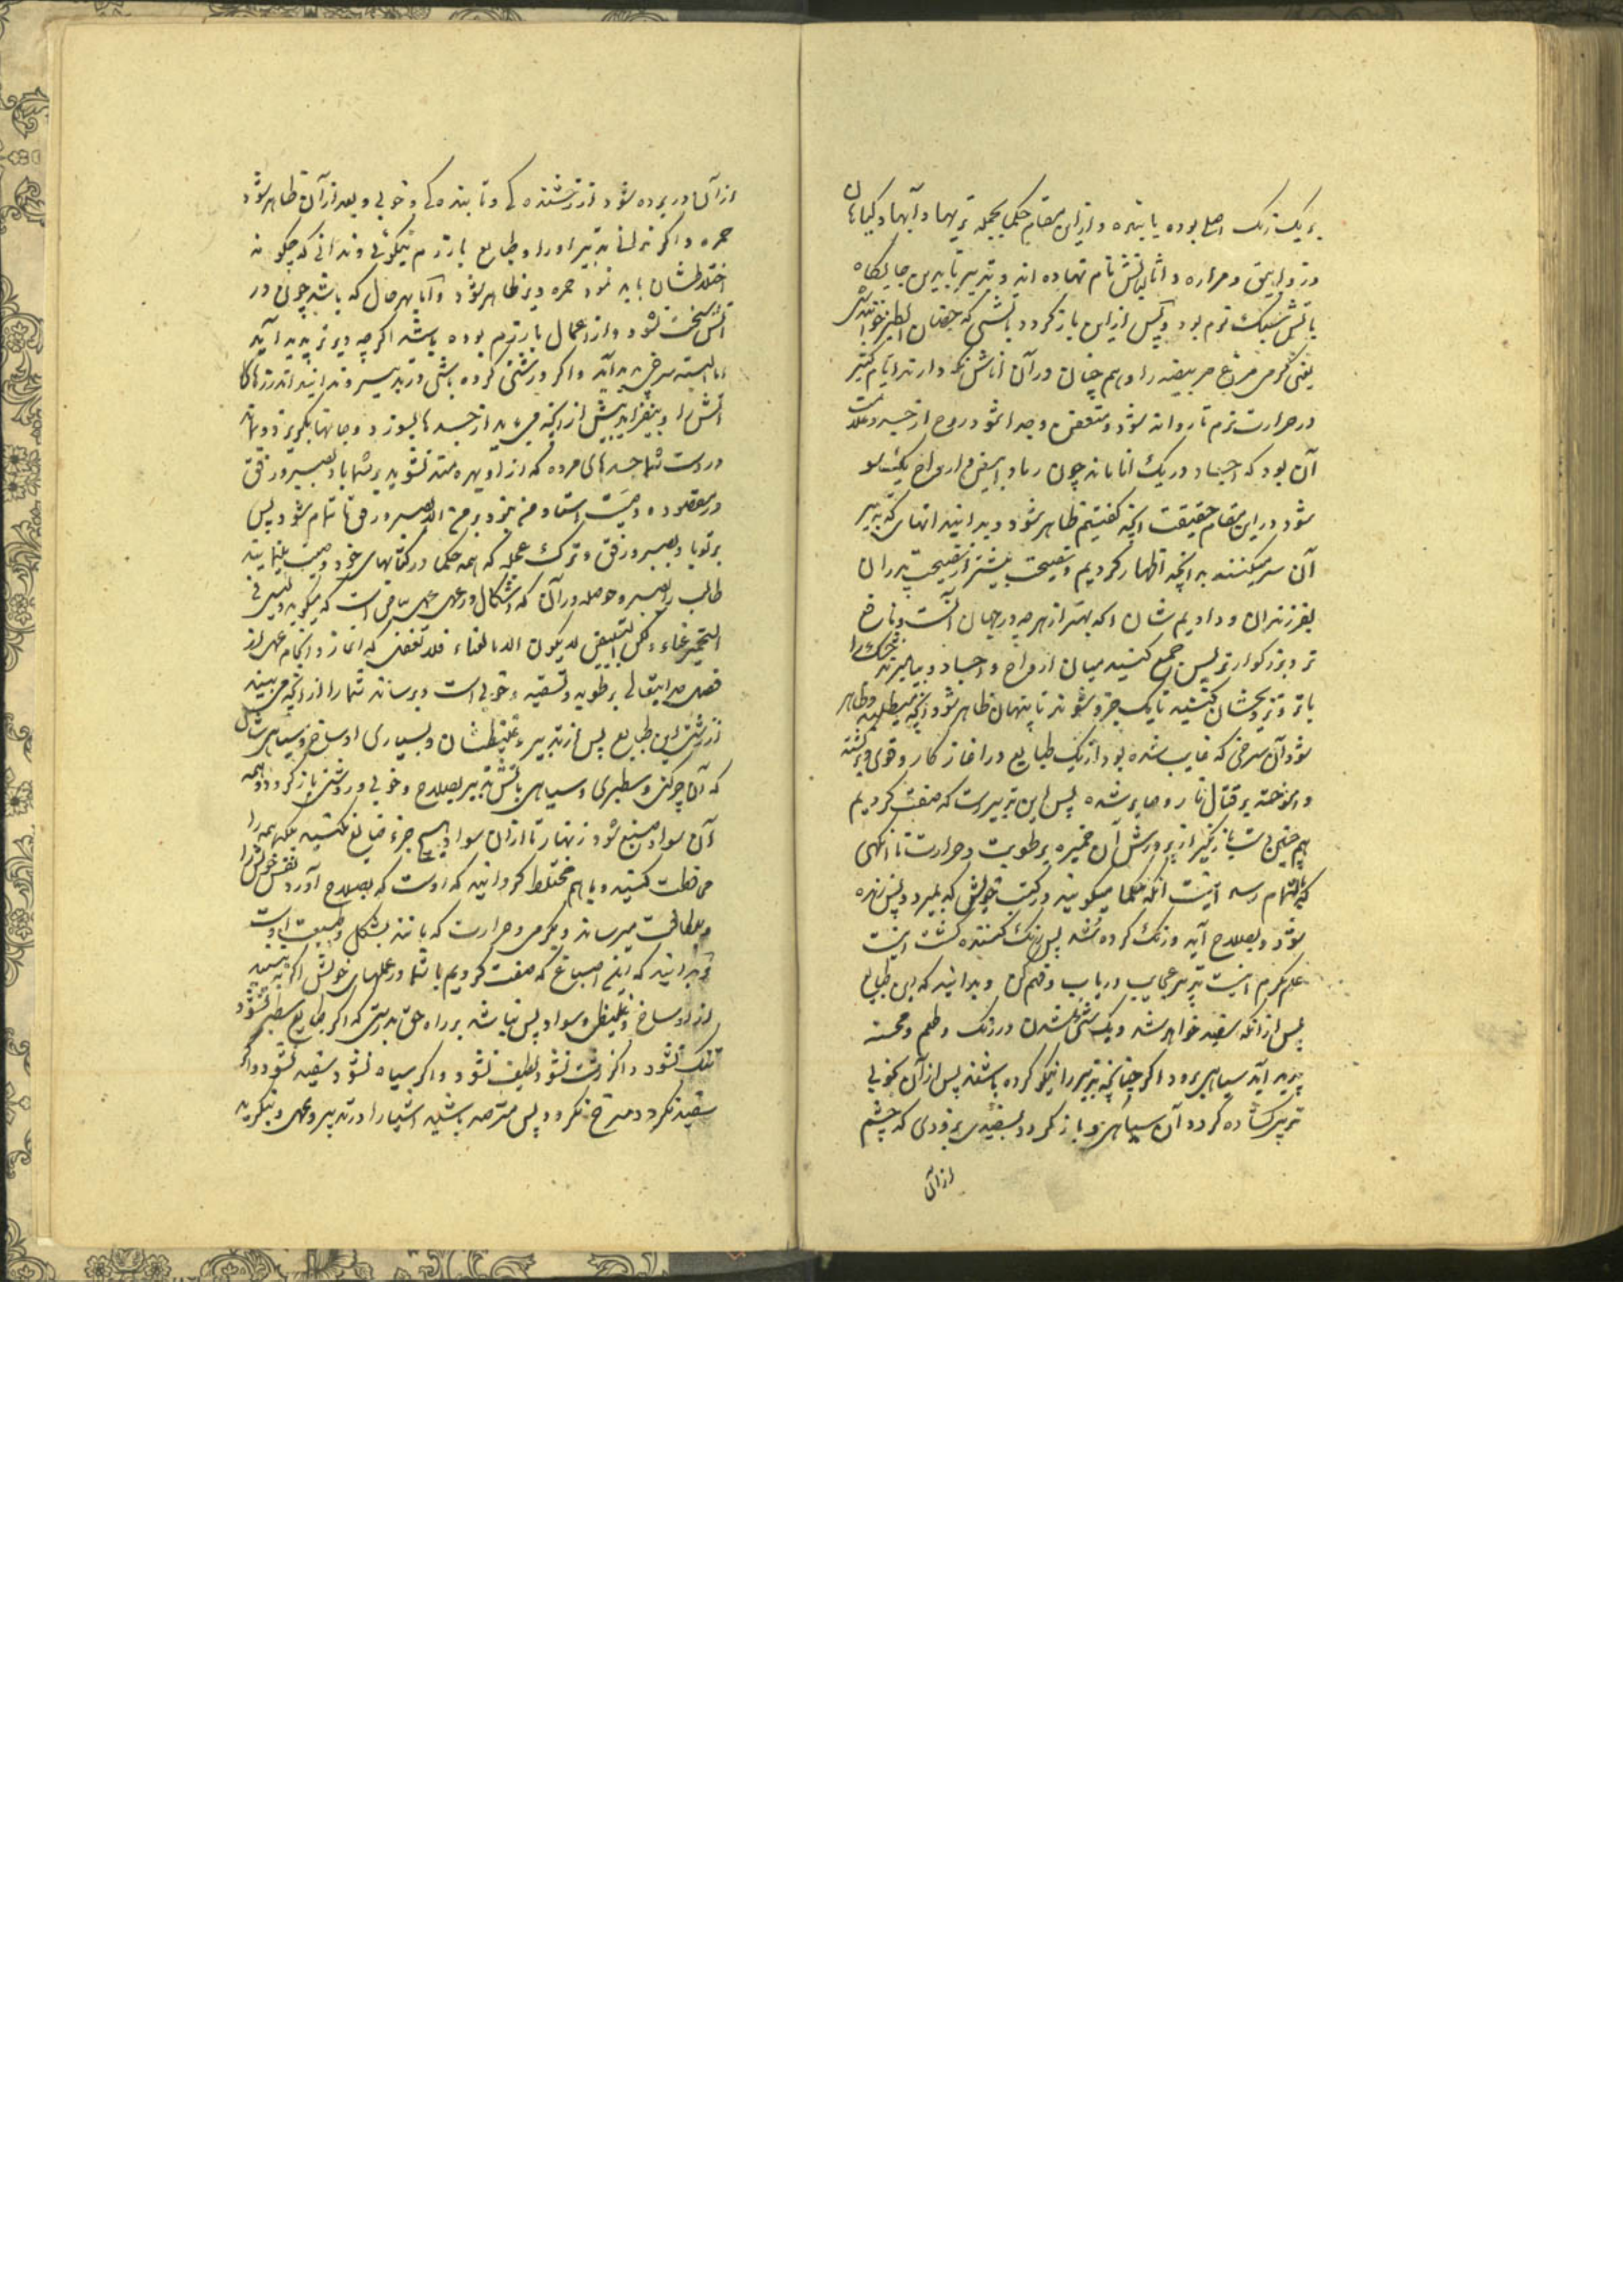 بر یک رنک اصلی بوده یا بتیره و ازین مقام حکما بجمله تریهها و آبها و کیاهان
و مراره و نام نهاده اند و تدبیر تا بدین جایکاه
باتش سبک نرم بود و پس ازین باز کردد باتشی که حضان الطیر خوانندش
یعنی کرمی مرغ مر بیضه را و هم چنان در آن اتش نکه دارند ایام کثیر
در حرارت نرم تا روانه شود و متعفن و جدا شود روح از جسد و علامت
آن بود که اجساد در یک اناء ماند چون رماد ابیض و ارواح یکسو
شود در این مقام حقیقت آنچه کفتیم ظاهر شود و بدانید انتهای که تدبیر
آن سر میکنند به آنچه اظهار کردیم و نصیحت بیشتر از نصیحت پدران
بفرزندان و دادیم شان آنکه بهتر از هر چه در جهان است و نافع
تر و بزرکوارتر پس جمع کنید میان ارواح و اجساد و بیامیزید خشک را
باتر و تزویجشان کنید تا یک جزو شوند تا پنهان ظاهر شود آنچه میطلبید و ظاهر
شود آن سرخی که غایب شده بود از یک طبایع در اغاز کار و قوی برکشته
و آموخته بر قتال نار و صابر شده پس این تدبیر است که صفت کردیم
هم چنین باز نکیر از پرورش آن خمیره برطوبت و حرارت تا آنکهی
که بتمام رسد اینست آنکه حکما میکویند در کتب خویش که بمیرد و پس زنده
شود و بصلاح آید و رنک کرده شد پس رنک کننده کشت اینست
علم مکرم اینست تدبیر عجایب دریاب و فهم کن و بدانید که این طبایع
پس از آنکه سفید خواهد شد و یک شی شدن در رنک و طعم و مجسته
پدید آید سیاهی برو و اکر چنانچه تدبیر را نیکو کرده باشند پس از آن بخوبی
تدبیر کشاده کردد آن سیاهی و باز کردد بسفیدی بزودی که چشم
از آن
از آن در برده شود از رخشنده کی و تابنده کی و خوبی و بعد از آن ظاهر شود
حمره و اکر ندانی تدبیر او را و طبایع بارزم نیکوئی و ندانی که چکونه
اختلاطشان باید نمود حمره دیر ظاهر شود و اما بهر حال که باشد چون در
آتش سخت نشود و از اعمال بارزم بوده باشد اکر چه دیرتر پدید آید
اما البته سرخی پدید آید و اکر درشتی کرده باشی در تدبیر و ندانید اندازهای
آتش را و بیفزاید بیش از آنچه می باید از جسدها بسوزد و جانها بکریزد و بماند
در دست شما جسدهای مرده که از او بهره‌مند نشوید بر شما باد بصبر و رفق
در مقصود و وصیت استاد
بر تو باد بصبر و رفق و ترک عجله که همه حکما در کتابهای خود وصیت بنمایند
طالب را بصبر و حوصله در آن که اشکال در عمل همین ساقی است که میکوید و لیس فی
التخمیر غناء و لکن التبییض لا یکون الا بالغناء فلا تغفلن که اغاز و انجام عمل از
فصل برطوبه و تسقیه و خوبی است و برساند شما را از آنچه می بینید
از زشتی این طبایع پس از تدبیر و غلیظشان و بسیاری اوساخ و سیاهی شان
که آن چرکنی و سطبری و سیاهی باتش تدبیر بصلاح و خوبی و روشنی باز کردد و همه
آن سواد صبغ شود زنهار تا از آن سواد هیچ جزء ضایع نکنید بلکه همه را
محافظت کنید و با هم مختلط کردانید که اوست که بصلاح آورد نفس خویش را
و بلطافت میرساند و بکرمی و حرارت که باتش بشکل و طبیعت اوست
و بدانید که این اصباغ که صفت کردیم با شما در عملهای خویش اکر نه بینید
از اوساخ و غلیظی و سواد پس نباشد بر راه حق بدرستی که اکر طبایع سطبر نشود
تنک نشود و اکر زشت نشود لطیف نشود و اکر سیاه نشود سفید نشود و اکر
سفید نکردد سرخ نکردد پس مترصد باشید اشیا را در تدبیر و عمل و بنکرید